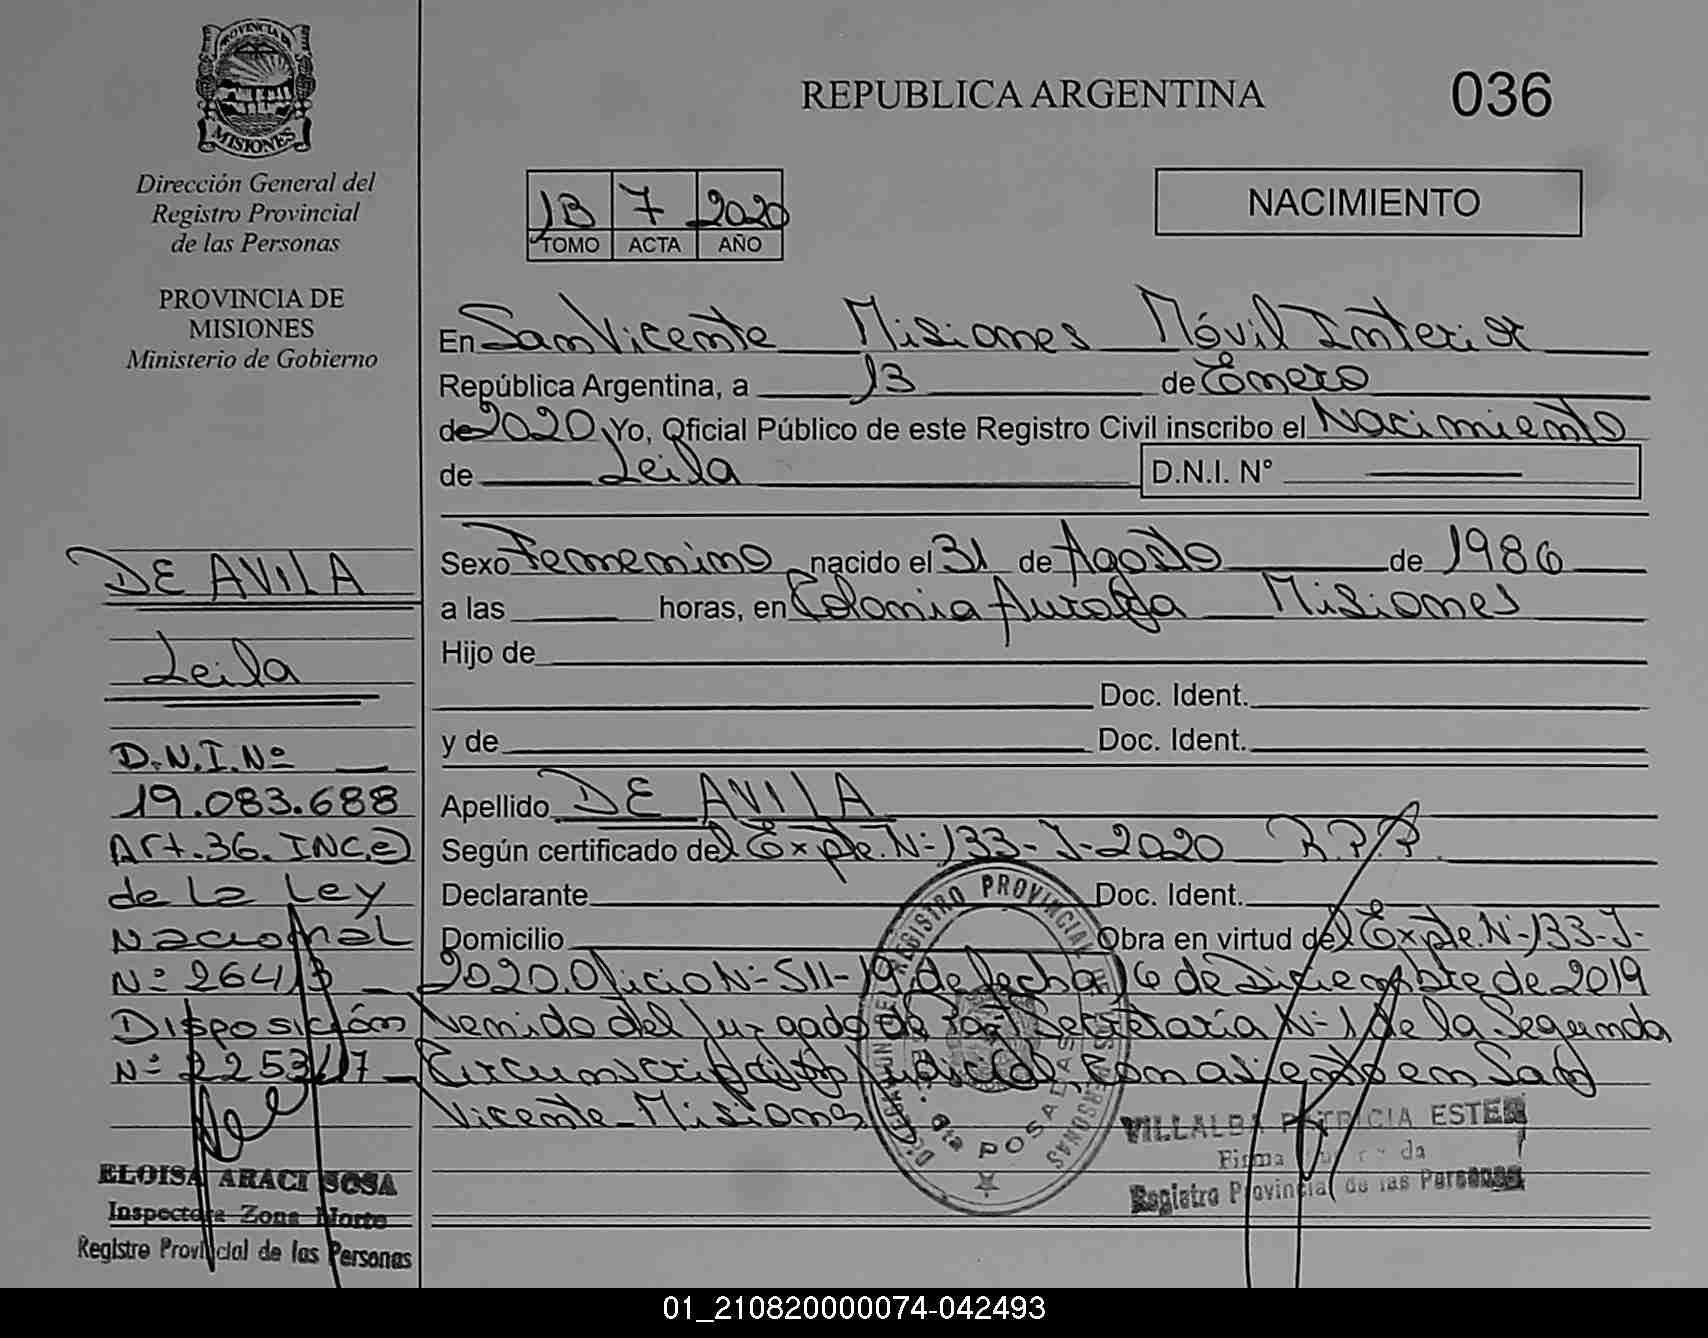 PROVINCIA DE
MISIONES
Dirección General del
Registro Provincial
de las Personas
PROVINCIA DE
MISIONES
Ministerio de Gobierno
REPUBLICA ARGENTINA
036
13 7 2020
TOMO ACTA AÑO
NACIMIENTO
En San Vicente Misiones Móvil Interior
República Argentina, a 13 de Enero
de 2020 Yo, Oficial Público de este Registro Civil inscribo el Nacimiento
de Leila D.N.I. N°
Sexo Femenino nacido el 31 de Agosto de 1986
a las horas, en Colonia Misiones
Hijo de
Doc. Ident.
y de Doc. Ident.
Apellido DE AVILA
Según certificado del Expte. N-133-J-2020 R.P.P.
Declarante Doc. Ident.
Domicilio Obra en virtud del Expte. N-133-J-
2020. Oficio N-511-19 de fecha 16 de Diciembre de 2019
venido del Juzgado de Paz Secretaría N-1 de la Segunda
Circunscripción Judicial con asiento en San
Vicente-Misiones
DE AVILA
Leila
D.N.I. Nº
19.083.688
Art.36.INC.e)
de La Ley
Nacional
Nº 26413
Disposición
Nº 2253/17
ELOISA ARACI SOSA
Inspectora Zona Norte
Registro Provincial de las Personas
REGISTRO PROVINCIAL DE LAS PERSONAS
POSADAS
VILLALBA PATRICIA ESTER
Firma
Registro Provincial de las Personas
01_210820000074-042493